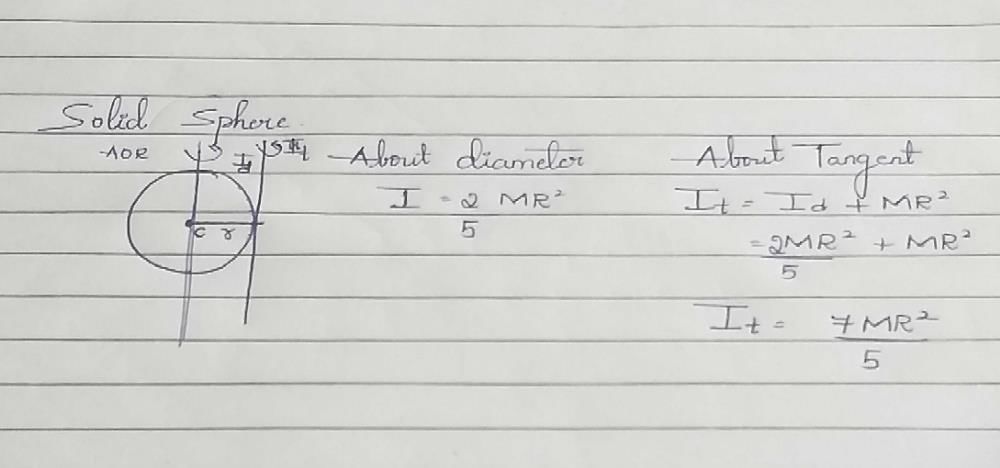 Solid Sphere
AOR
It
About diameter
I = 2 MR²
5
C r
About Tangent
It = Id + MR²
= 2MR² + MR²
5
It = 7MR²
5